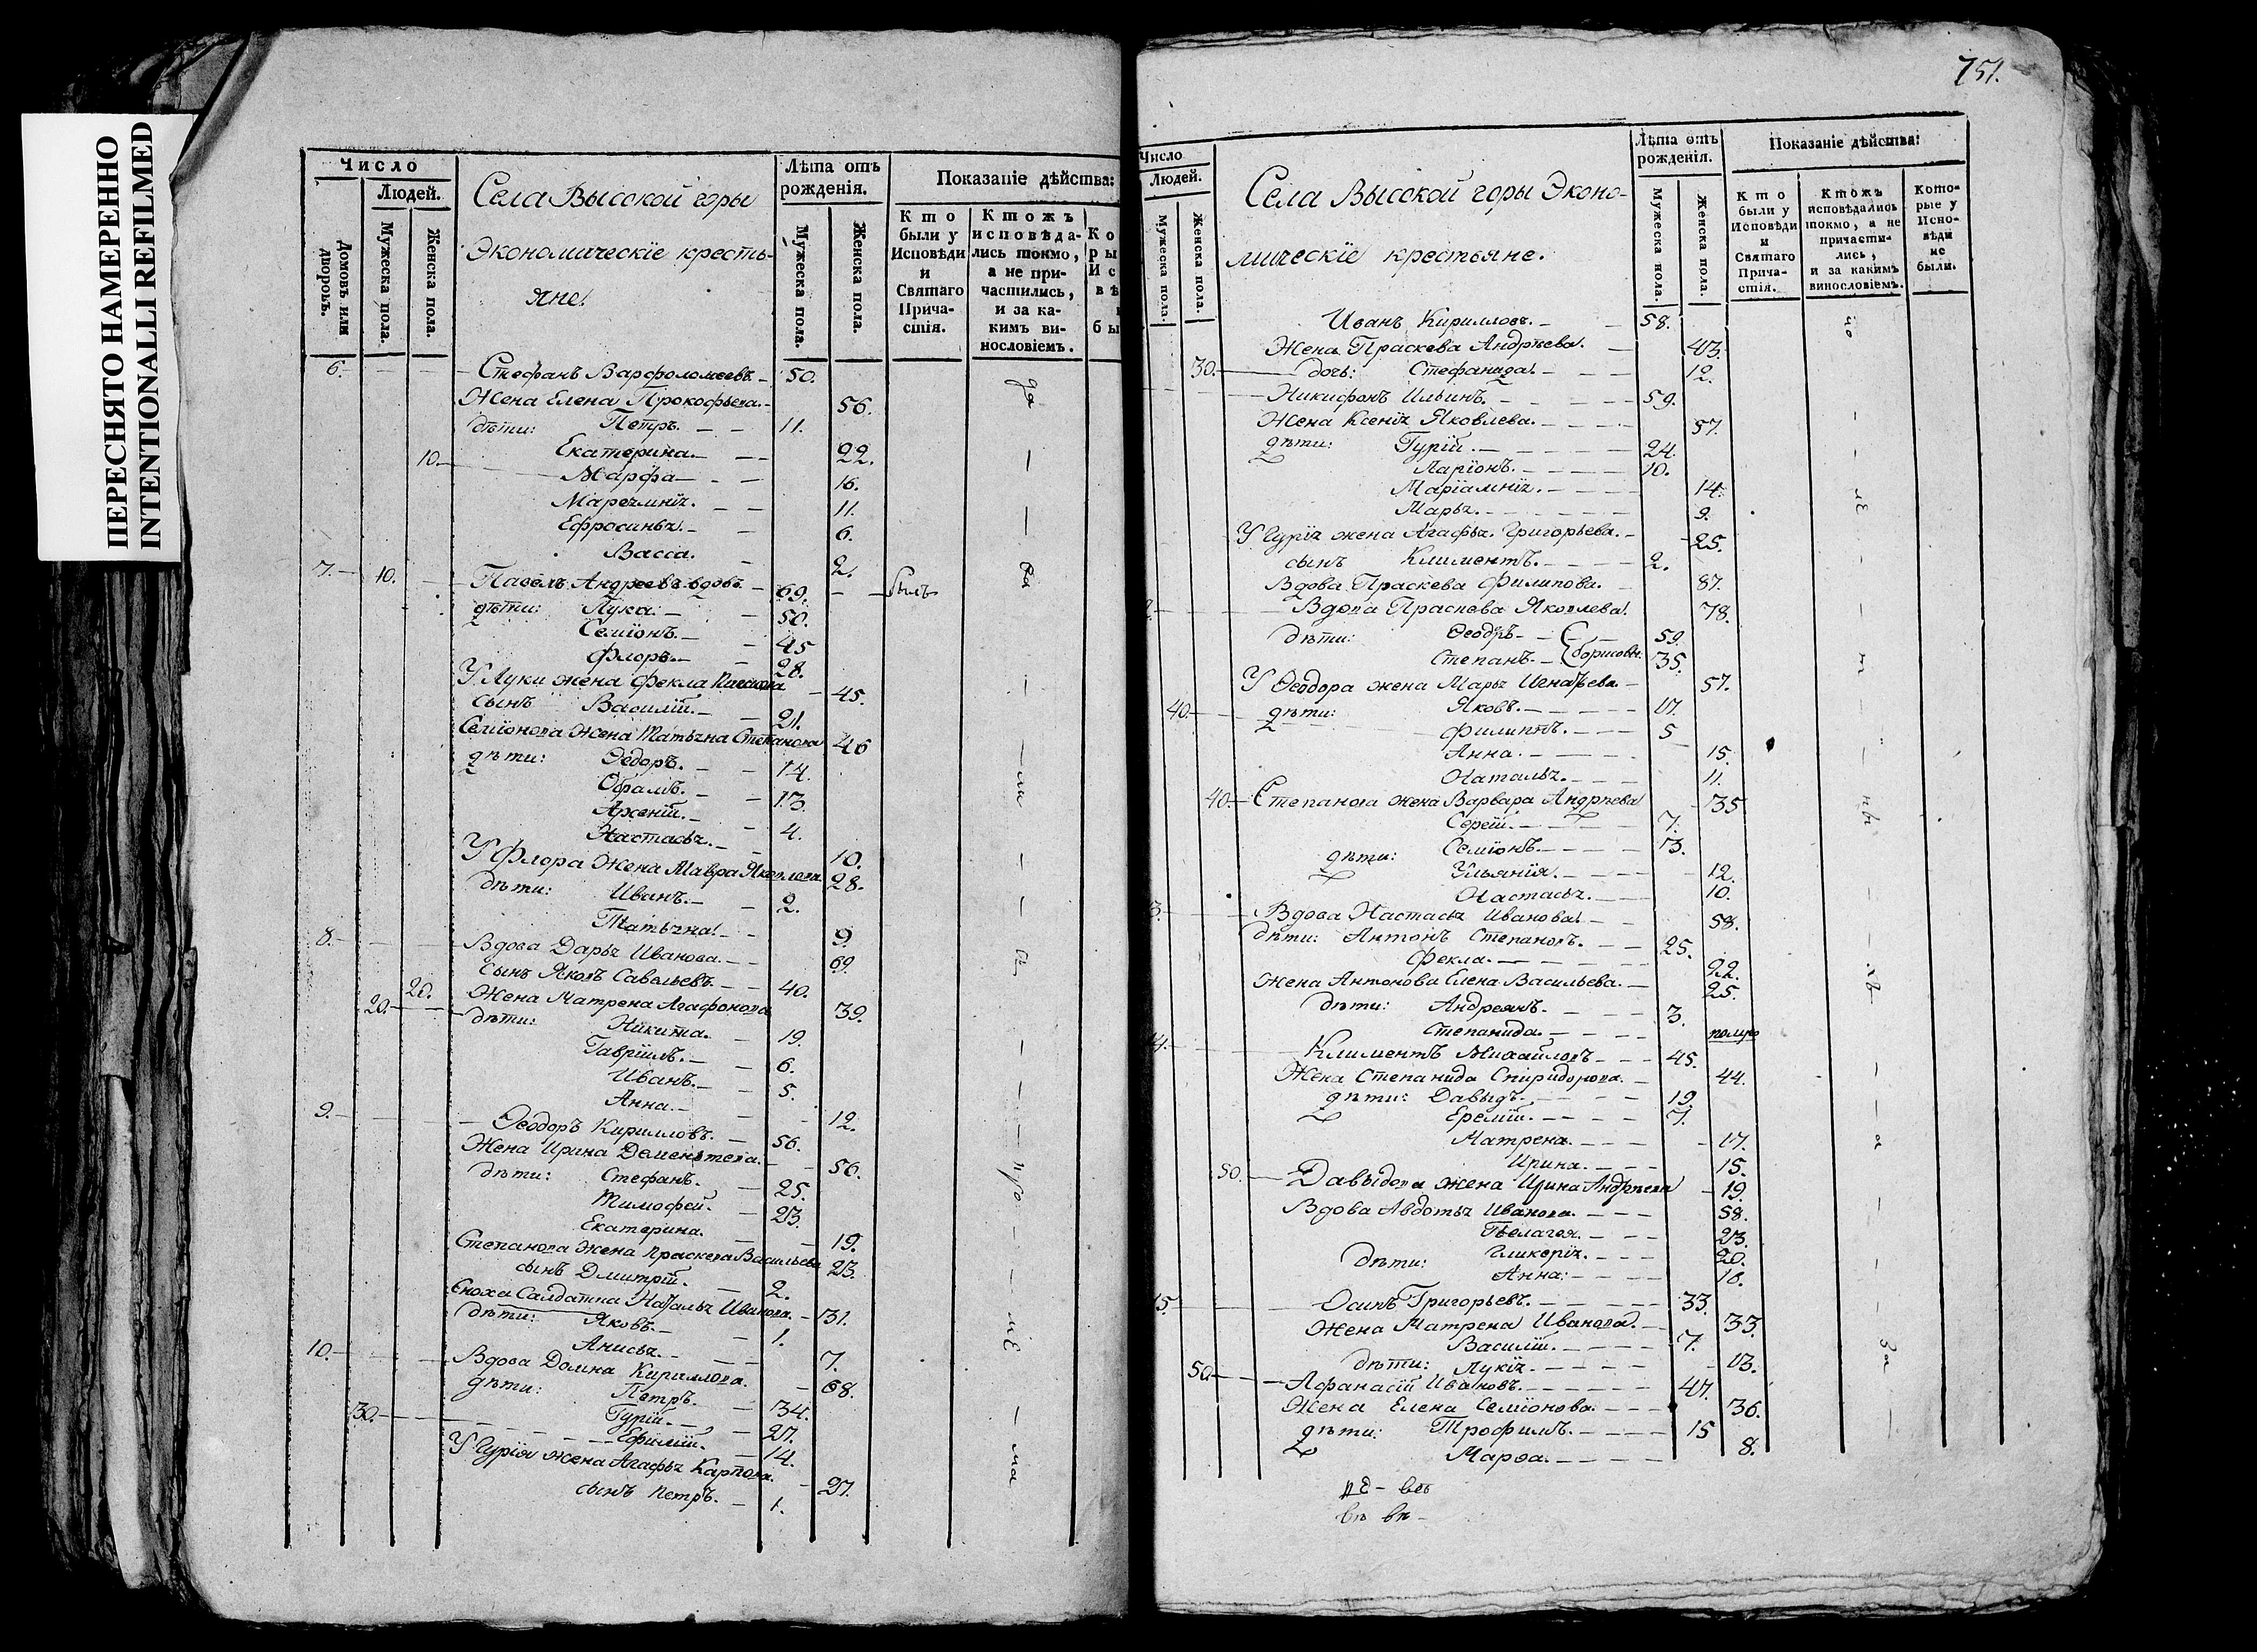 ПЕРЕСНЯТО НАМЕРЕННО
INTENTIONALLI REFILMED
Число
Людей.
Домовъ или дворовъ.
Мужеска пола.
Женска пола.
Села Высокой горы
Экономическїе кресть-
яне.
Лѣта отъ рожденія.
Мужеска пола.
Женска пола.
Показаніе дѣйства:
Кто были у Исповѣди и Святаго Прича-стія.
Ктожъ исповѣда-лись токмо, а не при-частились, и за ка-кимъ ви-нословіемъ.
6. Стефанъ Варфоломеевъ. 50.
Жена Елена Прокофьева. 56.
дѣти: Петръ. 11.
Екатерина. 22.
10. Марфа 16.
Маремнія. 11.
Ефросинья. 6.
Васса. 2.
7. 10. Павелъ Андреевъ вдовъ. 69. былъ
дѣти: Лука. 50.
Семїонъ. 45
Флоръ. 28.
У Луки жена Фекла 45.
сынъ Василїй. 21.
Семїонова жена Татьяна Степанова 46
дѣти: Ѳедоръ. 14.
13.
Арсенїй. 4.
Настасья. 10.
У Флора жена Мавра Яковлева 28.
дѣти: Иванъ. 2.
Татьяна. 9.
8. Вдова Дарья Иванова. 69.
сынъ Яковъ Савельевъ. 40.
20. Жена Матрена Агафонова 39.
20. дѣти: Никита. 19.
Гаврїилъ. 6.
Иванъ. 5.
Анна. 12.
9. Ѳеодоръ Кирилловъ. 56.
Жена Ирина Дементева. 56.
дѣти: Стефанъ. 25.
Тимофей. 23.
Екатерина. 19.
Степанова жена Праскева Васильева 23.
сынъ Дмитрїй. 2.
Сноха Салдатка Наталья Иванова. 31.
дѣти: Яковъ. 1.
Анисья. 7.
10. Вдова Домна Кириллова. 68.
дѣти: Петръ. 34.
30. Гурїй. 27.
Ефимїй. 14.
У Гурїя жена Агафья Карпова. 27.
сынъ Петръ. 1.
751.
Число
Людей.
Мужеска пола.
Женска пола.
Села Высокой горы Эконо-
мическїе крестьяне.
Лѣта отъ рожденія.
Мужеска пола.
Женска пола.
Показаніе дѣйства:
Кто были у Исповѣди и Святаго Прича-стія.
Ктожъ исповѣдались токмо, а не причасти-лись, и за какимъ винословіемъ.
Кото-рые у Испо-вѣди не были.
Иванъ Кирилловъ. 58.
Жена Праскева Андрѣева. 43.
30. дочь: Стефанида. 12.
Никифоръ Ильинъ. 59.
Жена Ксенїя Яковлева. 57.
дѣти: Гурїй. 24.
Ларїонъ. 10.
Марїамнїя. 14.
Марья. 9.
У Гурїя жена Агафья Григорьева. 25.
сынъ Климентъ. 2.
Вдова Праскева Филипова. 87.
Вдова Праскева Яковлева. 78.
дѣти: Ѳеодръ. 59.
Степанъ. Борисовы. 35.
У Ѳеодора жена Марья Игнатьева. 57.
40. дѣти: Яковъ. 17.
Филиппъ. 5
Анна. 15.
Наталья. 11.
40. Степанова жена Варвара Андрѣева 35.
Сергїй. 7.
дѣти: Семїонъ. 3.
Ульянїя. 12.
Настасья. 10.
3. Вдова Настасья Иванова. 58.
дѣти: Антонъ Степановъ. 25.
Фекла. 22.
Жена Антонова Елена Васильева. 25.
дѣти: Андреянъ. 3.
Степанида. полуго
4. Климентъ Михайловъ 45.
Жена Степанида Спиридонова. 44.
дѣти: Давыдъ. 19.
Еремїй. 7.
Матрена. 17.
Ирина. 15.
50. Давыдова жена Ирина Андрѣева 19.
Вдова Авдотья Иванова. 58.
Пелагея. 23.
дѣти: Гликерїя. 20.
Анна: 18.
15. Осипъ Григорьевъ. 33.
Жена Матрена Иванова. 33.
Василїй. 7.
дѣти: Лукїя. 13.
50. Афанасїй Ивановъ. 47.
Жена Елена Семїонова. 36.
дѣти: Трофимъ. 15
Марѳа. 8.